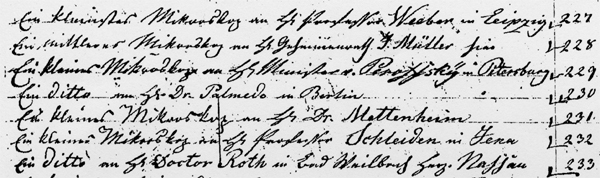 Ein kleinstes Mikroskop an H Professor Weber in Leipzig 227
Ein mittleres Mikroskop an H Geheimenrath J. Müller hier 228
Ein kleines Mikroskop an H Minister v. Peroffsky in Petersburg 229
Ein ditto an H Dr. Palmedo in Berlin " 230
Ein kleines Mikroskop an H Dr. Mettenheim 231
Ein kleines Mikroskop an H Professor Schleiden in Jena 232
Ein ditto an H Doctor Roth in Bad Weilbach Herz. Nassau 233